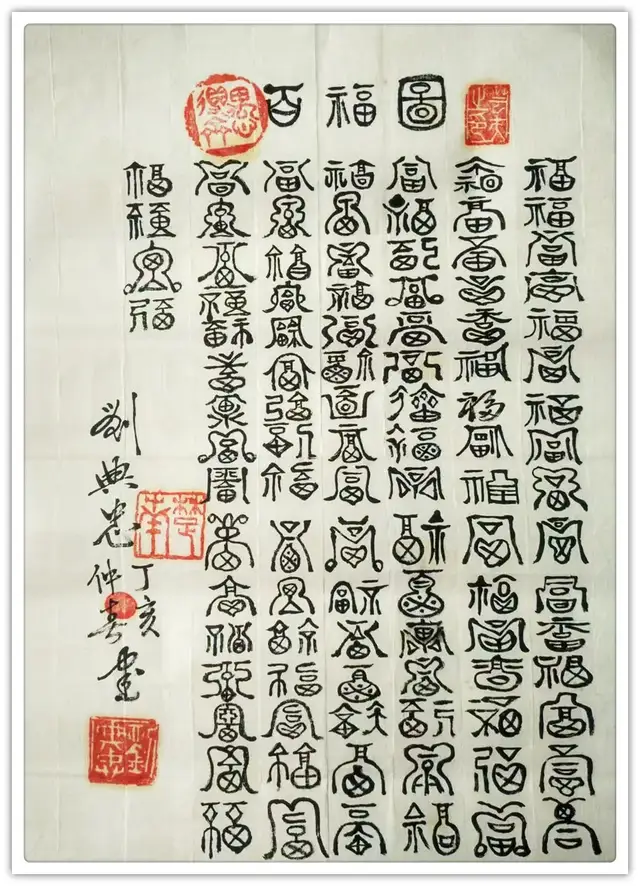 百福圖
福福福福福福福福福福福福福福福福
福福福福福福福福福福福福福福福福
福福福福福福福福福福福福福福福福
福福福福福福福福福福福福福福福福
福福福福福福福福福福福福福福福福
福福福福福福福福福福福福福福福福
福福福福
丁亥
劉典忠仲春書
楚南
劉典忠